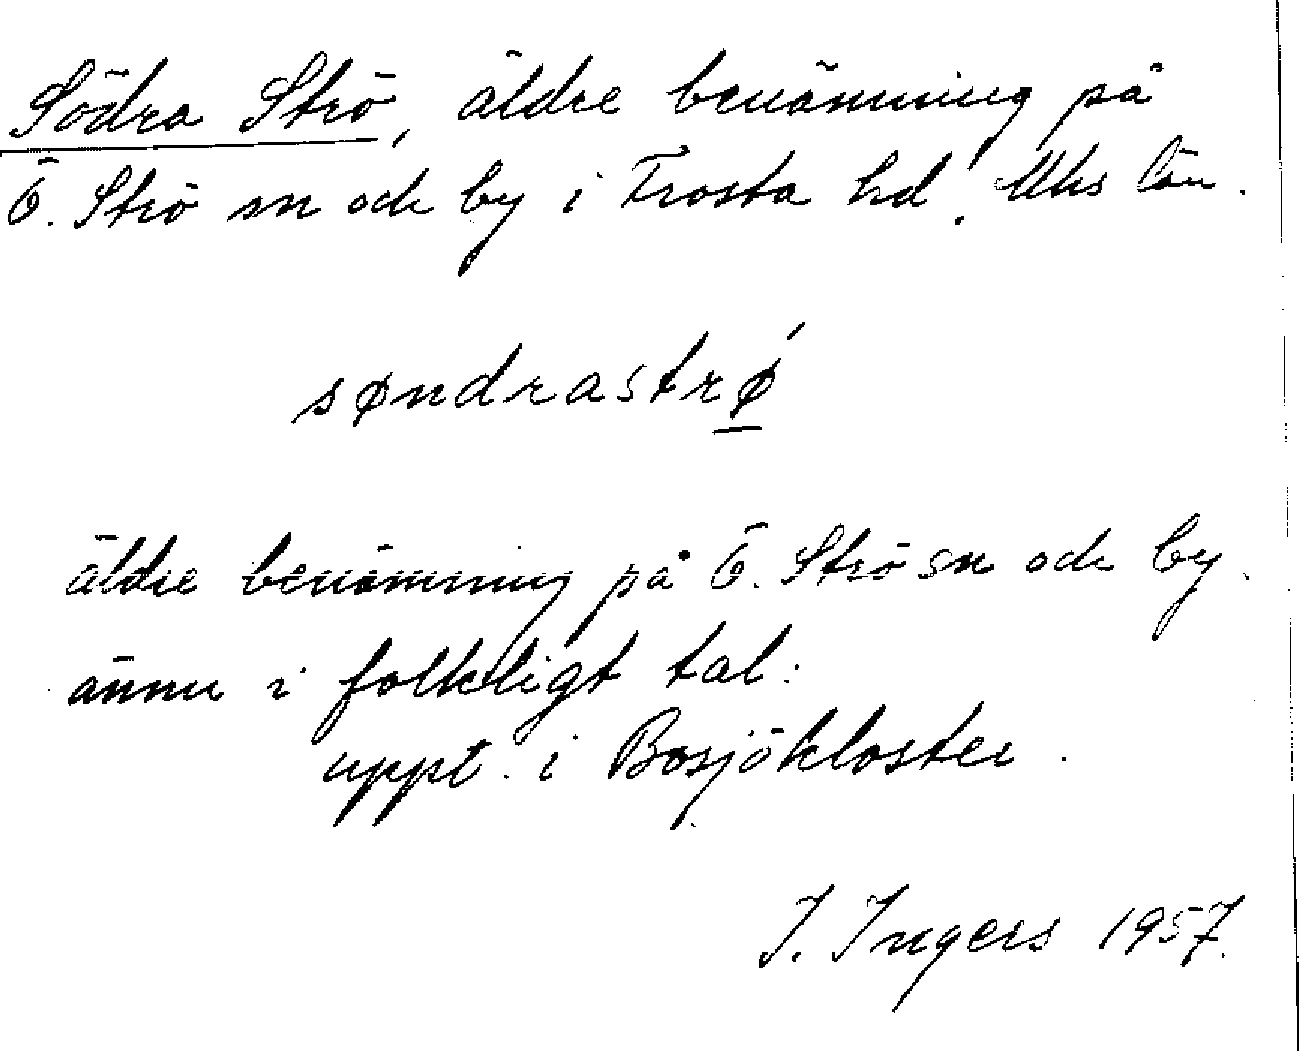 Södra Strö, äldre benämning på
Ö. Strö sn och by i Frosta hd, Mhs län.
søndrastrǿ
äldre benämning på Ö. Strö sn och by.
ännu i folkligt tal:
uppt. i Bosjökloster.
I. Ingers 1957.